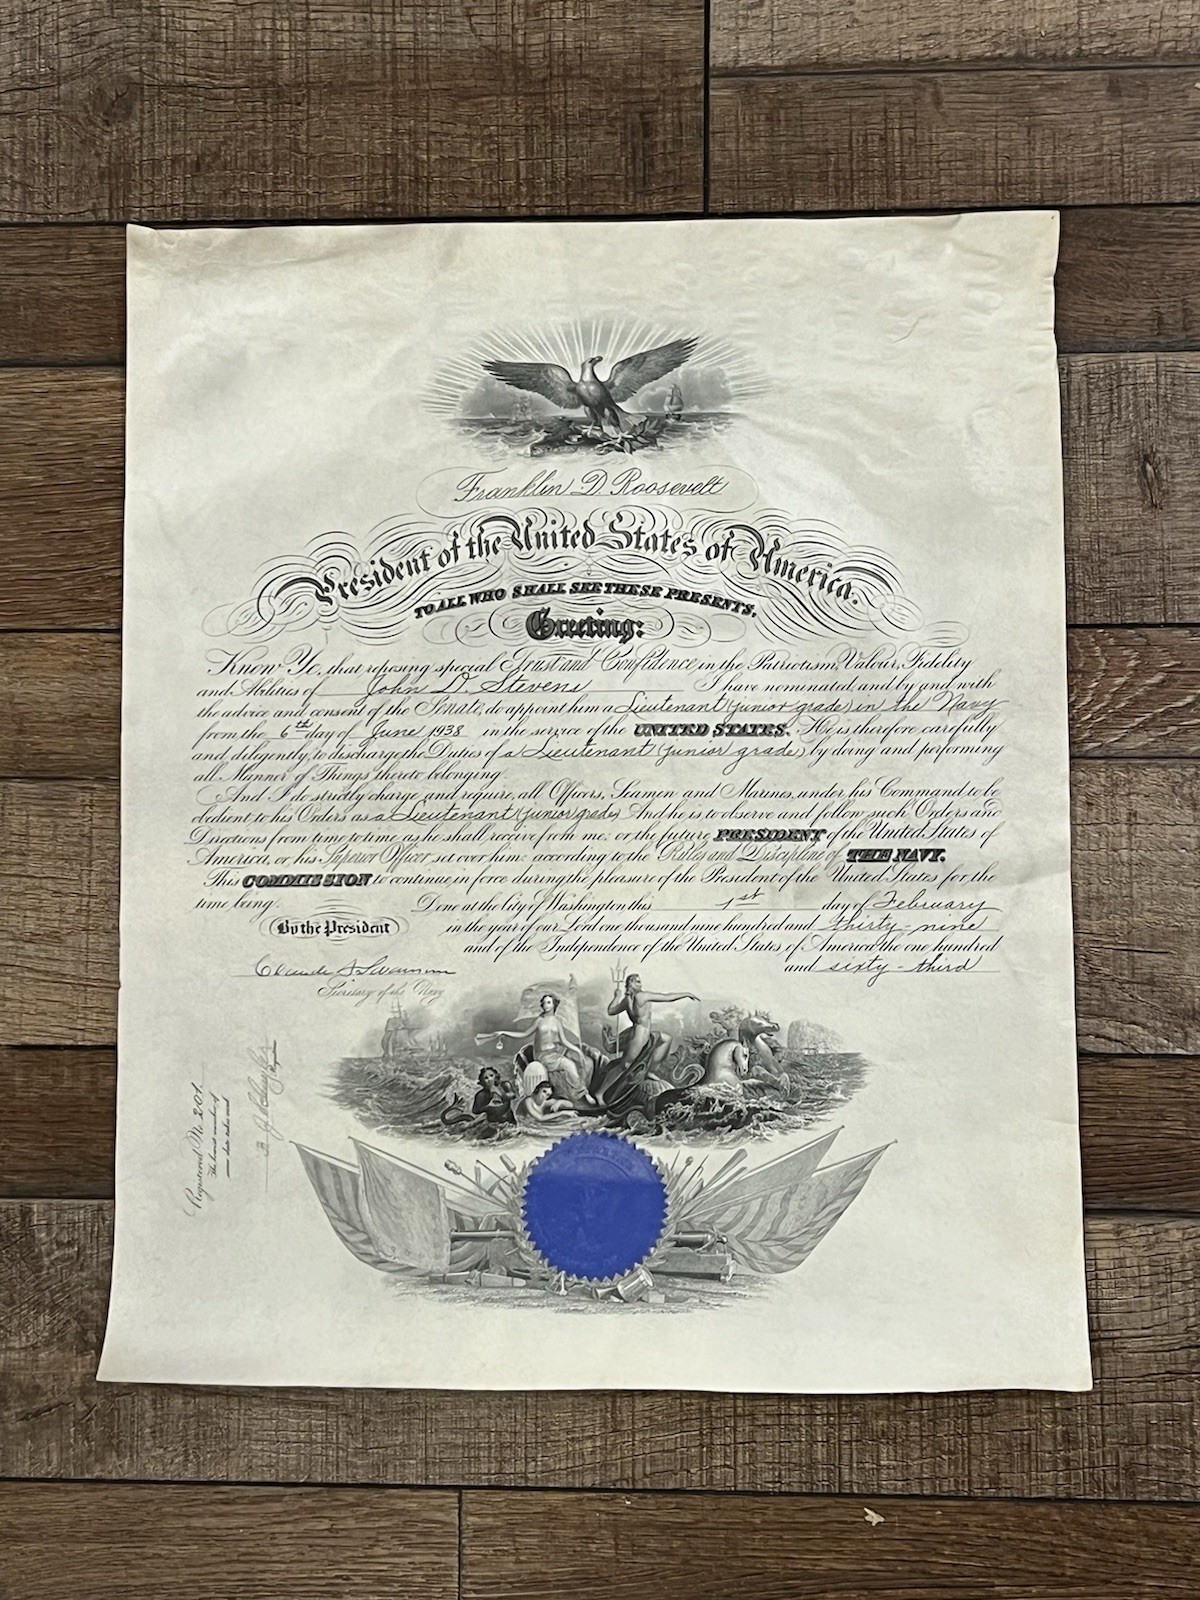 Franklin D. Roosevelt
President of the United States of America.
TO ALL WHO SHALL SEE THESE PRESENTS,
Greeting:
Know Ye, that reposing special Trust and Confidence in the Patriotism, Valour, Fidelity
and Abilities of John D. Stevens I have nominated and by and with
the advice and consent of the Senate, do appoint him a Lieutenant (junior grade) in the Navy
from the 6th day of June 1938 in the service of the UNITED STATES. He is therefore carefully
and diligently to discharge the Duties of a Lieutenant (junior grade) by doing and performing
all Manner of Things thereto belonging.
And I do strictly charge and require, all Officers, Seamen and Marines, under his Command to be
obedient to his Orders as a Lieutenant (junior grade) And he is to observe and follow such Orders and
Directions from time to time as he shall receive from me, or the future PRESIDENT of the United States of
America, or his Superior Officer set over him, according to the Rules and Discipline of THE NAVY.
This COMMISSION to continue in force during the pleasure of the President of the United States for the
time being.
Done at the City of Washington this 1st day of February
By the President
in the year of our Lord one thousand nine hundred and thirty-nine
and of the Independence of the United States of America the one hundred
and sixty-third
Claude A Swanson
Secretary of the Navy
Registered No 201